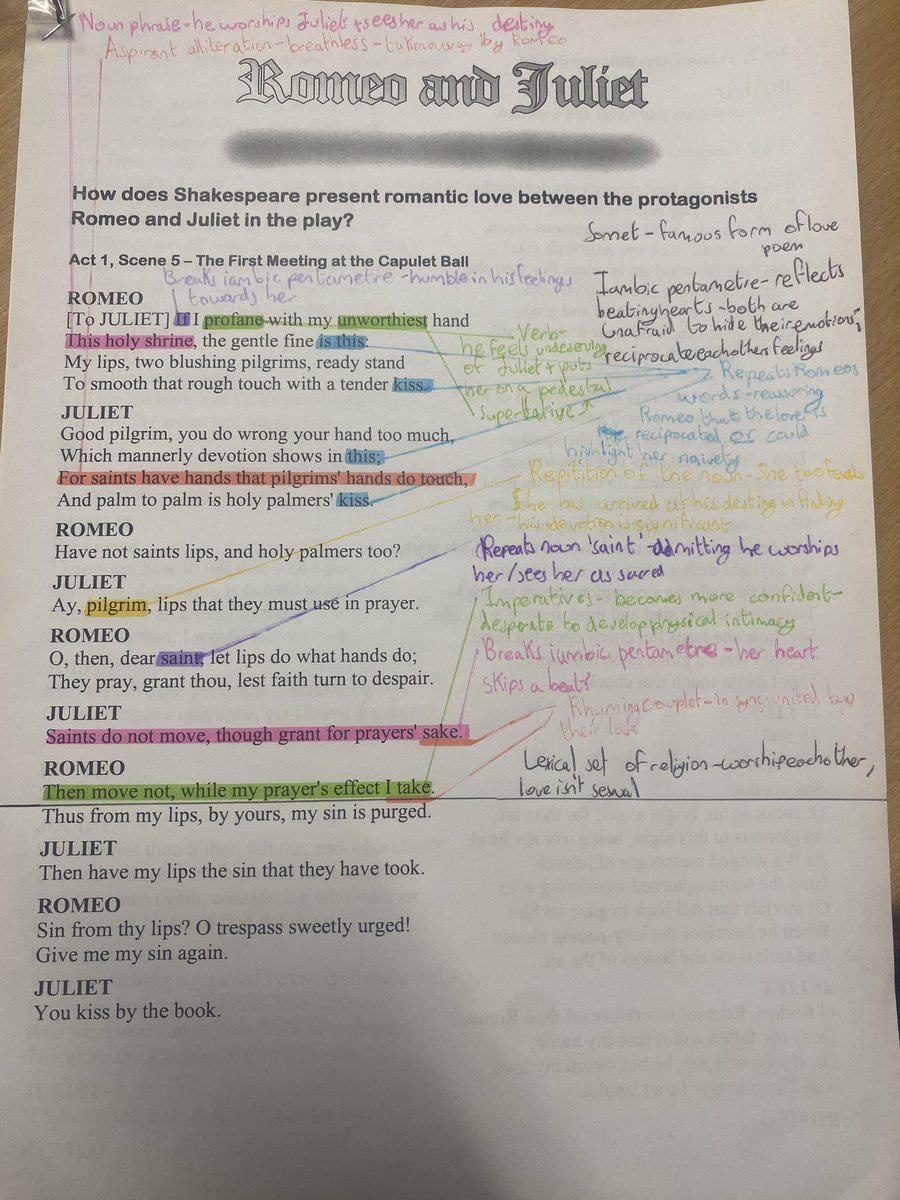 Noun phrase - he worships Juliet + sees her as his destiny
Aspirant alliteration - breathless - taken away by Romeo
Romeo and Juliet
How does Shakespeare present romantic love between the protagonists
Romeo and Juliet in the play?
Sonnet - famous form of love
poem
Act 1, Scene 5 – The First Meeting at the Capulet Ball
Breaks iambic pentametre - humble in his feelings
towards her
Iambic pentametre - reflects
beating hearts - both are
unafraid to hide their emotions;
reciprocate eachothers feelings
ROMEO
[To JULIET] If I profane with my unworthiest hand
This holy shrine, the gentle fine is this:
My lips, two blushing pilgrims, ready stand
To smooth that rough touch with a tender kiss.
Verb-
he feels undeserving
of Juliet + puts
her on a pedestal
Superlative
Repeats Romeos
words - reassuring
Romeo that the love is
reciprocated or could
highlight her naivety
JULIET
Good pilgrim, you do wrong your hand too much,
Which mannerly devotion shows in this;
For saints have hands that pilgrims' hands do touch,
And palm to palm is holy palmers' kiss.
Repitition of the noun - She too feels
he has arrived at his destiny in finding
her - his devotion is significant
ROMEO
Have not saints lips, and holy palmers too?
Repeats noun 'saint' - admitting he worships
her/sees her as sacred
JULIET
Ay, pilgrim, lips that they must use in prayer.
Imperatives - becomes more confident -
desperate to develop physical intimacy
ROMEO
O, then, dear saint, let lips do what hands do;
They pray, grant thou, lest faith turn to despair.
Breaks iambic pentametre - her heart
skips a beat?
JULIET
Saints do not move, though grant for prayers' sake.
Rhyming couplet - in sync; united by
their love
ROMEO
Then move not, while my prayer's effect I take.
Thus from my lips, by yours, my sin is purged.
Lexical set of religion - worship eachother,
love isn't sexual
JULIET
Then have my lips the sin that they have took.
ROMEO
Sin from thy lips? O trespass sweetly urged!
Give me my sin again.
JULIET
You kiss by the book.